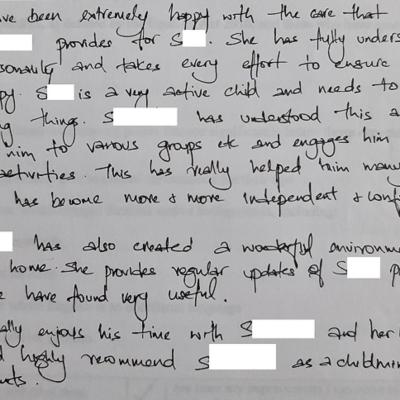 ve been extremely happy with the care that
provides for S . She has fully unders
sonality and takes every effort to ensure
py. S is a very active child and needs to
g things. S has understood this a
him to various groups etc and engages him
activities. This has really helped him man
has become more & more independent & conf
has also created a wonderful environm
home. She provides regular updates of S p
e have found very useful.
ally enjoys his time with S and her
d highly recommend S as a childmin
nts.